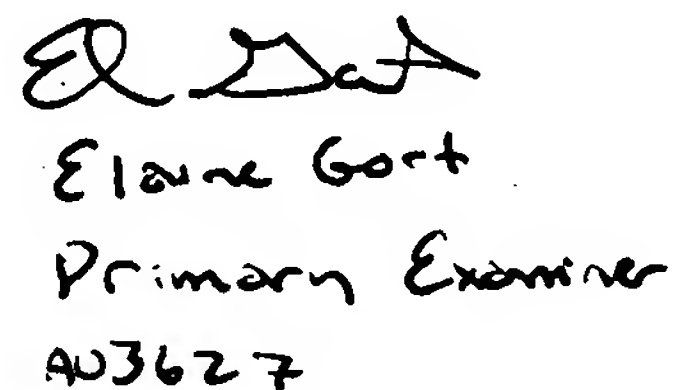 El Gort
Elaine Gort
Primary Examiner
AU3627